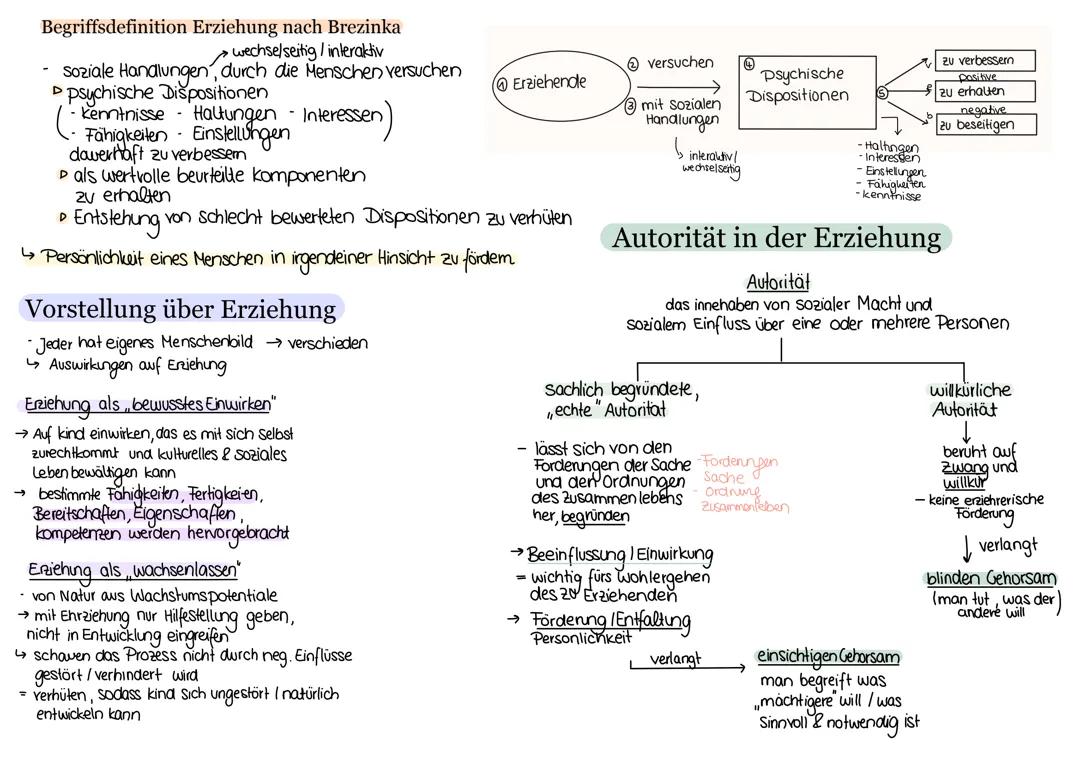 Begriffsdefinition Erziehung nach Brezinka
→ wechselseitig / interaktiv
- soziale Handlungen, durch die Menschen versuchen
▷ psychische Dispositionen
(- Kenntnisse - Haltungen - Interessen
- Fähigkeiten - Einstellungen)
dauerhaft zu verbessern
▷ als wertvolle beurteilte Komponenten
zu erhalten
▷ Entstehung von schlecht bewerteten Dispositionen zu verhüten
↳ Persönlichkeit eines Menschen in irgendeiner Hinsicht zu fördern
① Erziehende
② versuchen
③ mit sozialen
Handlungen
↳ interaktiv /
wechselseitig
④
Psychische
Dispositionen
⑤
zu verbessern
positive
zu erhalten
negative
zu beseitigen
- Haltungen
- Interessen
- Einstellungen
- Fähigkeiten
- Kenntnisse
Vorstellung über Erziehung
- Jeder hat eigenes Menschenbild → verschieden
↳ Auswirkungen auf Erziehung
Erziehung als „bewusstes Einwirken"
→ Auf Kind einwirken, das es mit sich selbst
zurechtkommt und kulturelles & soziales
Leben bewältigen kann
→ bestimmte Fähigkeiten, Fertigkeiten,
Bereitschaften, Eigenschaften,
Kompetenzen werden hervorgebracht
Erziehung als „wachsenlassen"
- von Natur aus Wachstumspotentiale
→ mit Ehrziehung nur Hilfestellung geben,
nicht in Entwicklung eingreifen
↳ schauen das Prozess nicht durch neg. Einflüsse
gestört / verhindert wird
= verhüten, sodass Kind sich ungestört / natürlich
entwickeln kann
Autorität in der Erziehung
Autorität
das innehaben von sozialer Macht und
sozialem Einfluss über eine oder mehrere Personen
sachlich begründete,
„echte" Autorität
- lässt sich von den
Forderungen der Sache
und den Ordnungen
des Zusammenlebens
her, begründen
- Forderungen
Sache
- Ordnung
Zusammenleben
→ Beeinflussung / Einwirkung
= wichtig fürs Wohlergehen
des zu Erziehenden
→ Förderung / Entfaltung
Persönlichkeit
verlangt →
einsichtigen Gehorsam
man begreift was
„mächtigere" will / was
Sinnvoll & notwendig ist
willkürliche
Autorität
↓
beruht auf
Zwang und
willkür
- keine erziehrerische
Förderung
↓ verlangt
blinden Gehorsam
(man tut, was der
andere will)